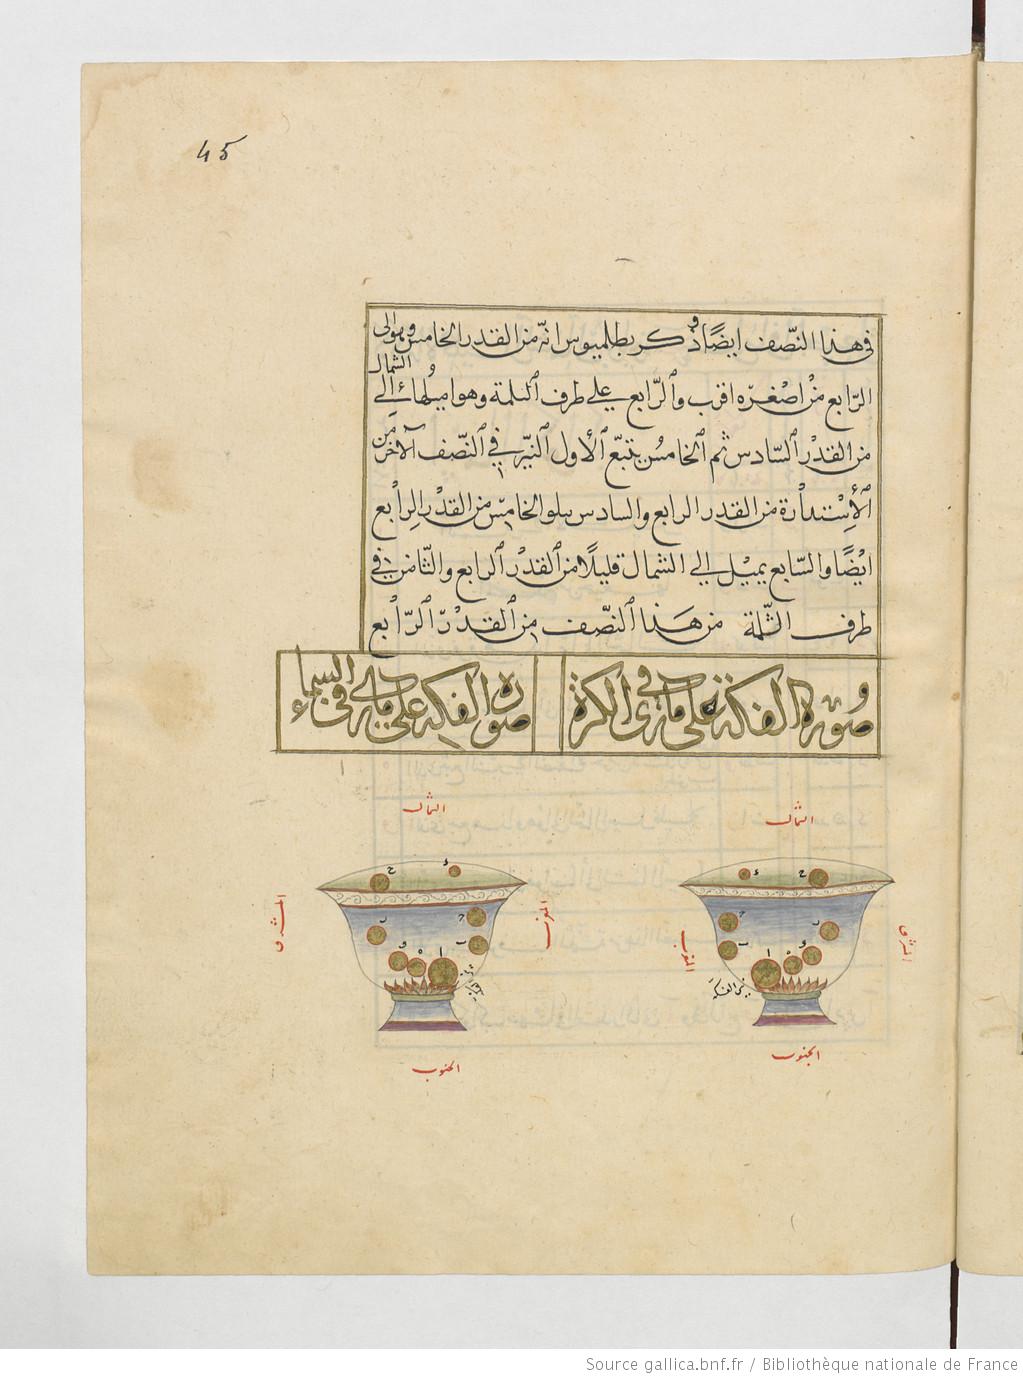 45
في هذا النصف ايضًا وذكر بطلميوس انه من القدر الخامس وهو الى
الرابع من اصغره اقرب والرابع على طرف الثلمة وهو اميلها الى الشمال
من القدر السادس ثم الخامس يتبع الأول النير في النصف الآخر من
الأستدارة من القدر الرابع والسادس يتلو الخامس من القدر الرابع
ايضًا والسابع يميل الى الشمال قليلًا من القدر الرابع والثامن في
طرف الثلمة من هذا النصف من القدر الرابع
صورة الفكة على ما ترى في الكرة
صورة الفكة على ما ترى في السماء
الشمال
الشمال
المشرق
المغرب
المغرب
المشرق
نير الفكة
الجنوب
الجنوب
Source gallica.bnf.fr / Bibliothèque nationale de France